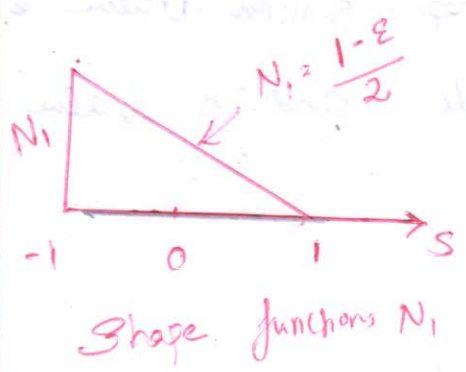 N₁ = (1-ε)/2
N₁
-1 0 1 S
Shape functions N₁